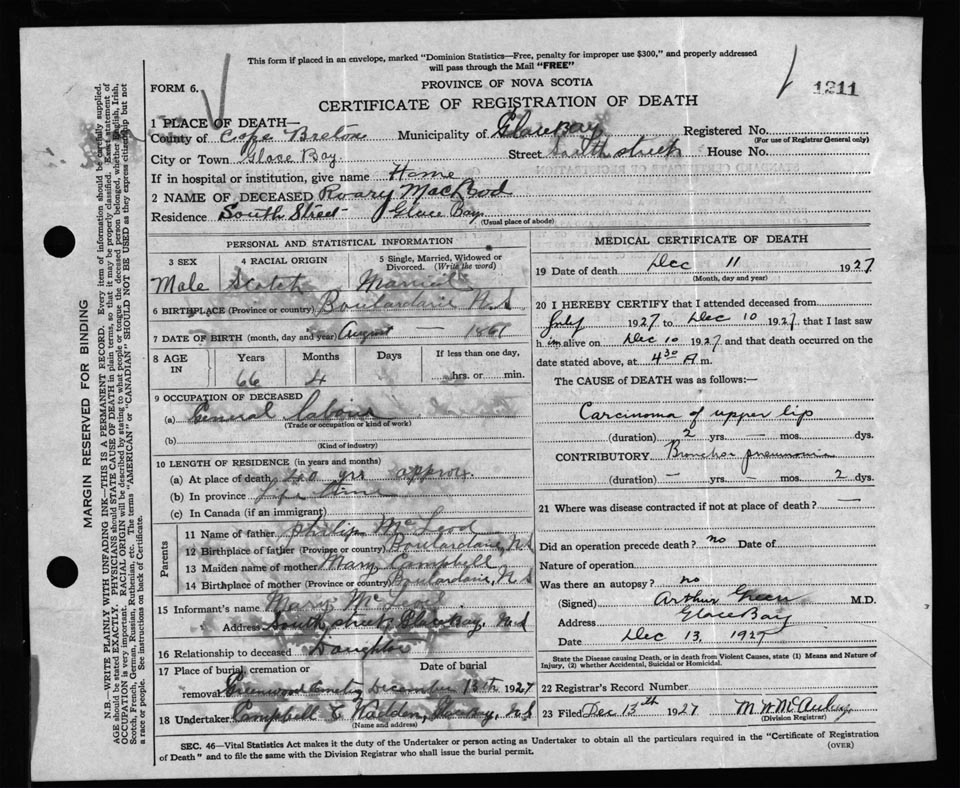 This form if placed in an envelope, marked "Dominion Statistics—Free, penalty for improper use $300," and properly addressed
will pass through the Mail "FREE"
FORM 6.
PROVINCE OF NOVA SCOTIA
1211
CERTIFICATE OF REGISTRATION OF DEATH
1 PLACE OF DEATH—
County of Cape Breton Municipality of Glace Bay Registered No.
(For use of Registrar General only)
City or Town Glace Bay Street South street House No.
If in hospital or institution, give name Home
2 NAME OF DECEASED Roary MacLeod
Residence South Street Glace Bay
(Usual place of abode)
PERSONAL AND STATISTICAL INFORMATION
3 SEX 4 RACIAL ORIGIN 5 Single, Married, Widowed or Divorced. (Write the word)
Male Scotch Married
6 BIRTHPLACE (Province or country) Boulardarie N.S
7 DATE OF BIRTH (month, day and year) August — 1861
8 AGE IN Years Months Days If less than one day,
66 4 hrs. or min.
9 OCCUPATION OF DECEASED
(a) General labour
(Trade or occupation or kind of work)
(b)
(Kind of industry)
10 LENGTH OF RESIDENCE (in years and months)
(a) At place of death 40 yrs approx
(b) In province life time
(c) In Canada (if an immigrant)
Parents
11 Name of father Philip McLeod
12 Birthplace of father (Province or country) Boulardarie, N S
13 Maiden name of mother Mary Campbell
14 Birthplace of mother (Province or country) Boulardarie, N S
15 Informant's name Mary McLeod
Address South street Glace Bay, N.S
16 Relationship to deceased Daughter
17 Place of burial, cremation or removal Date of burial
Greenwood Cemetery December 13th 1927
18 Undertaker Campbell & Wadden, Glace Bay, N.S
(Name and address)
MEDICAL CERTIFICATE OF DEATH
19 Date of death Dec 11 1927
(Month, day and year)
20 I HEREBY CERTIFY that I attended deceased from
July 1927 to Dec 10 1927, that I last saw
him alive on Dec 10 1927 and that death occurred on the
date stated above, at 4 30 A m.
The CAUSE OF DEATH was as follows:—
Carcinoma of upper lip
(duration) 2 yrs. — mos. dys.
CONTRIBUTORY Broncho pneumonia
(duration) — yrs. — mos. 2 dys.
21 Where was disease contracted if not at place of death? —
Did an operation precede death? no Date of
Nature of operation
Was there an autopsy? no
(Signed) Arthur Green M.D.
Address Glace Bay
Date Dec 13, 1927
State the Disease causing Death, or in death from Violent Causes, state (1) Means and Nature of
Injury, (2) whether Accidental, Suicidal or Homicidal.
22 Registrar's Record Number
23 Filed Dec 13th 1927
(Division Registrar)
SEC. 46—Vital Statistics Act makes it the duty of the Undertaker or person acting as Undertaker to obtain all the particulars required in the "Certificate of Registration
of Death" and to file the same with the Division Registrar who shall issue the burial permit.
(OVER)
MARGIN RESERVED FOR BINDING
N.B.—WRITE PLAINLY WITH UNFADING INK—THIS IS A PERMANENT RECORD. Every item of information should be carefully supplied.
AGE should be stated EXACTLY. PHYSICIANS should STATE CAUSE OF DEATH in plain terms, so that it may be properly classified. Exact statement of
OCCUPATION is very important. RACIAL ORIGIN will be described by stating to what people or tongue the deceased person belonged, whether English, Irish,
Scotch, French, German, Russian, Ruthenian, etc. The terms "AMERICAN" or "CANADIAN" SHOULD NOT BE USED as they express citizenship but not
a race or people. See instructions on back of Certificate.